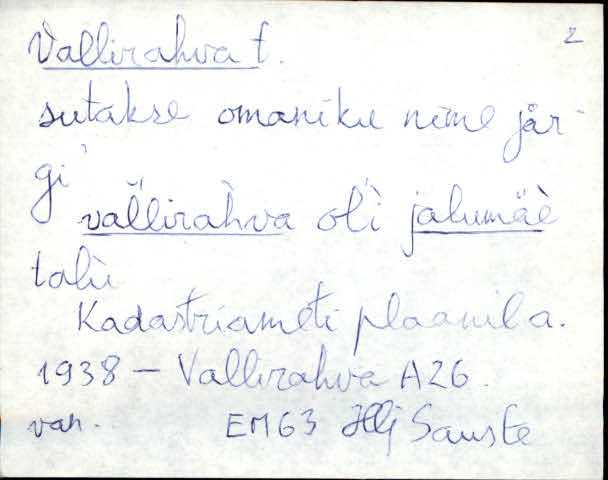 Vallirahva t. 2
sutakse omaniku nime jär-
gi
vallirahva oli jalumäe
talu
Kadastriameti plaanil a.
1938 – Vallirahva A26.
van. EM63 Sauste